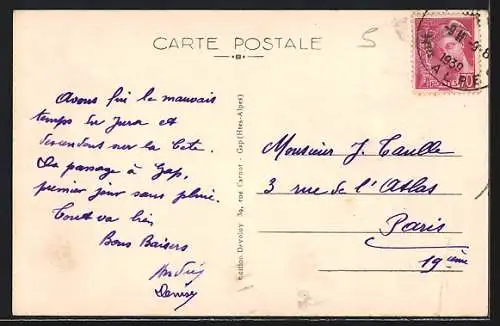 CARTE POSTALE
5
1939
Avons fui le mauvais
temps du Jura et
descendons sur la Cote.
De passage à Gap,
premier jour sans pluie.
Tout va bien
Bons Baisers
Denise
Edition Devoluy 3a, rue Carnot - Gap (Htes-Alpes)
Monsieur J. Caulle
3 rue de l'Atlas
Paris
19ième